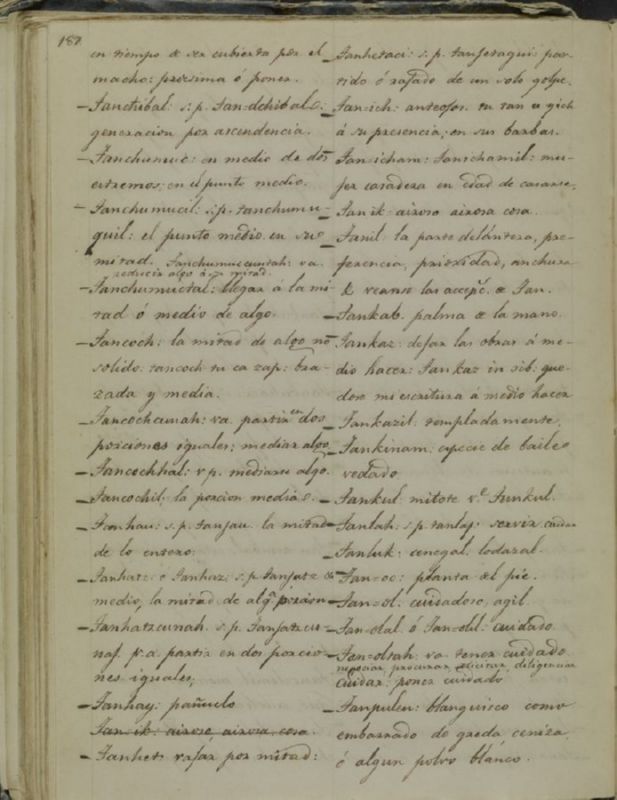 187.
en tiempo de ser cubierta por el
macho: procsima ó poner.
Tanchibal: s. p. tan-dchibal:
generacion por ascendencia.
Tanchumuc: en medio de dos
extremos; en el punto medio.
Tanchumucil: s. p. tanchumu-
quil: el punto medio en su
mitad. Tanchumuccunah: va.
reducir algo á su mitad.
Tanchumuctal: llegar á la mi-
tad ó medio de algo.
Tancoch: la mitad de algo no
solido: tancoch tu ca zap: bra-
zada y media.
Tancochcunah: va. partir en dos
porciones iguales; mediar algo.
Tancochhal: v p. mediarse algo.
Tancochil; la porcion media.
Tanhau: s. p. tanjau. la mitad
de lo entero.
Tanhatz: o Tanhaz: s. p. tanjatz
medio, la mitad de alg.ª porcion
Tanhatzcunah. s. p. Tanjatzcu-
naj. v. a. partir en dos porcio-
nes iguales,
Tanhay: pañuelo
Tan-ik: airoso, airosa cosa.
Tanhets rajar por mitad:
Tanhetaci: s. p. tanjetaqui: par-
tido ó rajado de un solo golpe.
Tan-ich: anteojos. tu tan u yich
á su presencia; en sus barbas.
Tan-icham: Tanichamil: mu-
jer casadera en edad de casarse.
Tan ik: airoso airosa cosa.
Tanil: la parte delantera, pre-
ferencia, prioridad, anchura
veanse las accepc.ˢ de Tan.
Tankab. palma de la mano.
Tankaz: dejar las obras á me-
dio hacer: Tankaz in sib: que-
dose mi escritura á medio hacer
Tankazil: templadamente.
Tankinam: especie de baile
vedado
Tankul: mitote v.ᵉ Tunkul.
Tanlah: s. p. tanlaj: servir cuidar
Tanluk: cenegal. lodazal.
Tan-oc: planta del pie.
Tan-ol: cuidadoso, agil.
Tan-olal ó Tan-olil: cuidado.
Tan-oltah: va. tener cuidado
negociar, procurar, solicitar, diligenciar
cuidar: poner cuidado
Tanpulen: blanquisco como
embarrado de greda ceniza
ó algun polvo blanco.